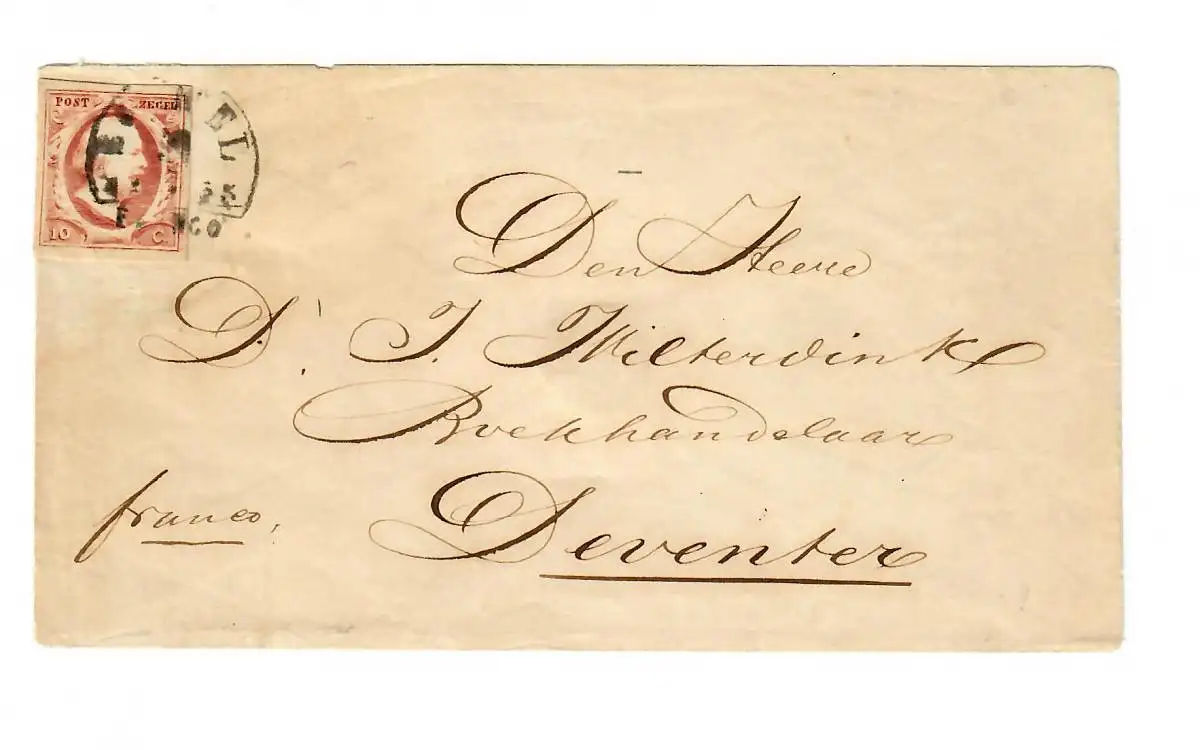 POST ZEGEL
10 C.
FRANCO
Den Heere
D. J. Wilterdink
Boekhandelaar
franco,
Deventer